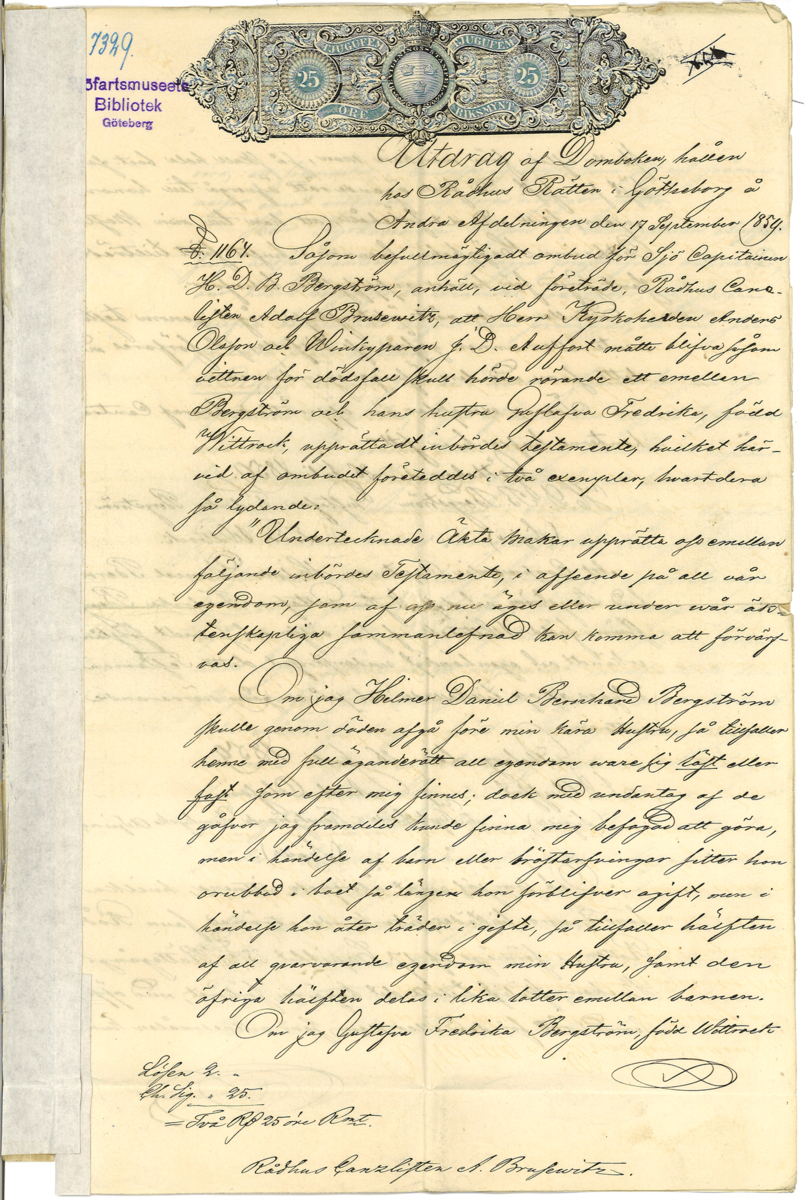 7329.
TJUGUFEM
TJUGUFEM
25
25
ÖRE
RIKSMYNT
öfartsmuseets
Bibliotek
Göteborg
Utdrag af Domboken, hållen
hos Rådhus Rätten i Götheborg å
Andra Afdelningen den 17 September 1859.
§. 1164. Såsom befullmägtigadt ombud för Sjö Capitainen
H. D. B. Bergström, anhöll, vid företräde, Rådhus Canc-
listen Adolf Brusewitz, att Herr Kyrkoherden Anders
Olsson och Winkyparen J. D. Auffort måtte blifva såsom
vittnen för dödsfall skull hörde rörande ett emellan
Bergström och hans hustru Gustafva Fredrika, född
Wittrock, upprättadt inbördes testamente, hvilket här-
vid af ombudet företeddes i två exemplar, hvartdera
så lydande:
"Undertecknade Äkta Makar upprätta oss emellan
följande inbördes Testamente, i afseende på all vår
egendom, som af oss nu äges eller under wår äk-
tenskapliga sammanlefnad kan komma att förvärf-
vas.
Om jag Helmer Daniel Bernhard Bergström
skulle genom döden afgå före min kära Hustru, så tillfaller
henne med full äganderätt all egendom ware sig löst eller
fast som efter mig finnes; dock med undantag af de
gåfvor jag framdeles kunde finna mig befogad att göra,
men i händelse af barn eller bröstarfvingar sitter hon
orubbad i boet så länge hon förblifver ogift, men i
händelse hon åter träder i gifte, så tillfaller hälften
af all qvarvarande egendom min Hustru, samt den
öfriga hälften delas i lika lotter emellan barnen.
Om jag Gustafva Fredrika Bergström, född Wittrock
Lösen 2. "
Ch. Sig. " 25.
= Två Rd 25 öre Rmt.
Rådhus Canzlisten A. Brusewitz.